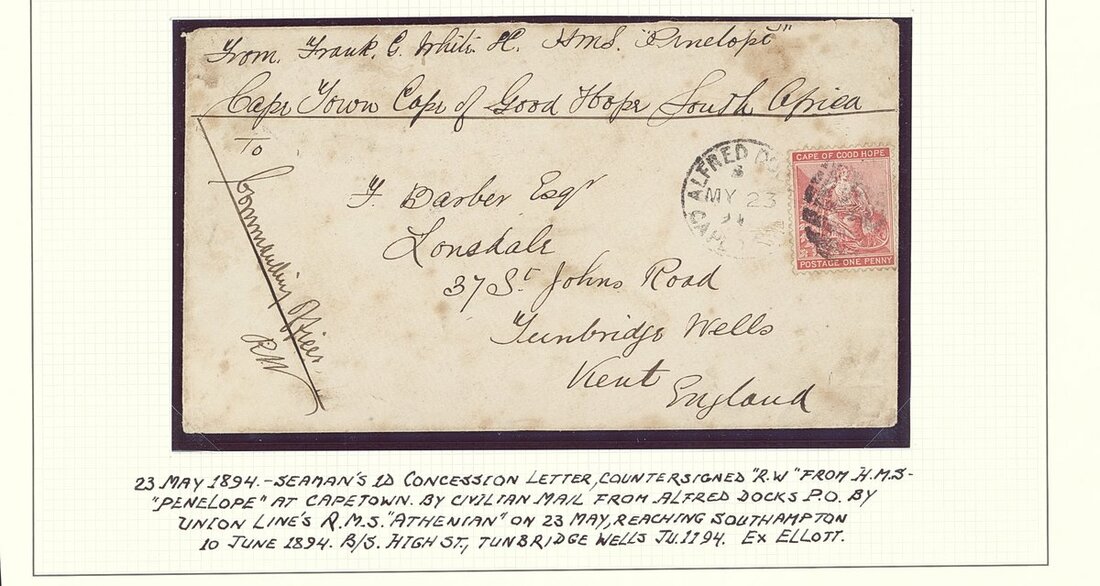 From. Frank. G. White. H. Hms. "Penelope"
Cape Town Cape of Good Hope South Africa
To
Commanding Officer
R.W
F. Barber Esqr
Lonsdale
37 St. Johns Road
Tunbridge Wells
Kent
England
ALFRED DO
MY 23
94
CAPE
CAPE OF GOOD HOPE
POSTAGE ONE PENNY
23 MAY 1894.-SEAMAN'S 1D CONCESSION LETTER, COUNTERSIGNED "R.W" FROM H.M.S-
"PENELOPE" AT CAPETOWN. BY CIVILIAN MAIL FROM ALFRED DOCKS P.O. BY
UNION LINE'S R.M.S. "ATHENIAN" ON 23 MAY, REACHING SOUTHAMPTON
10 JUNE 1894. B/S. HIGH ST, TUNBRIDGE WELLS JU.11 94. EX ELLOTT.